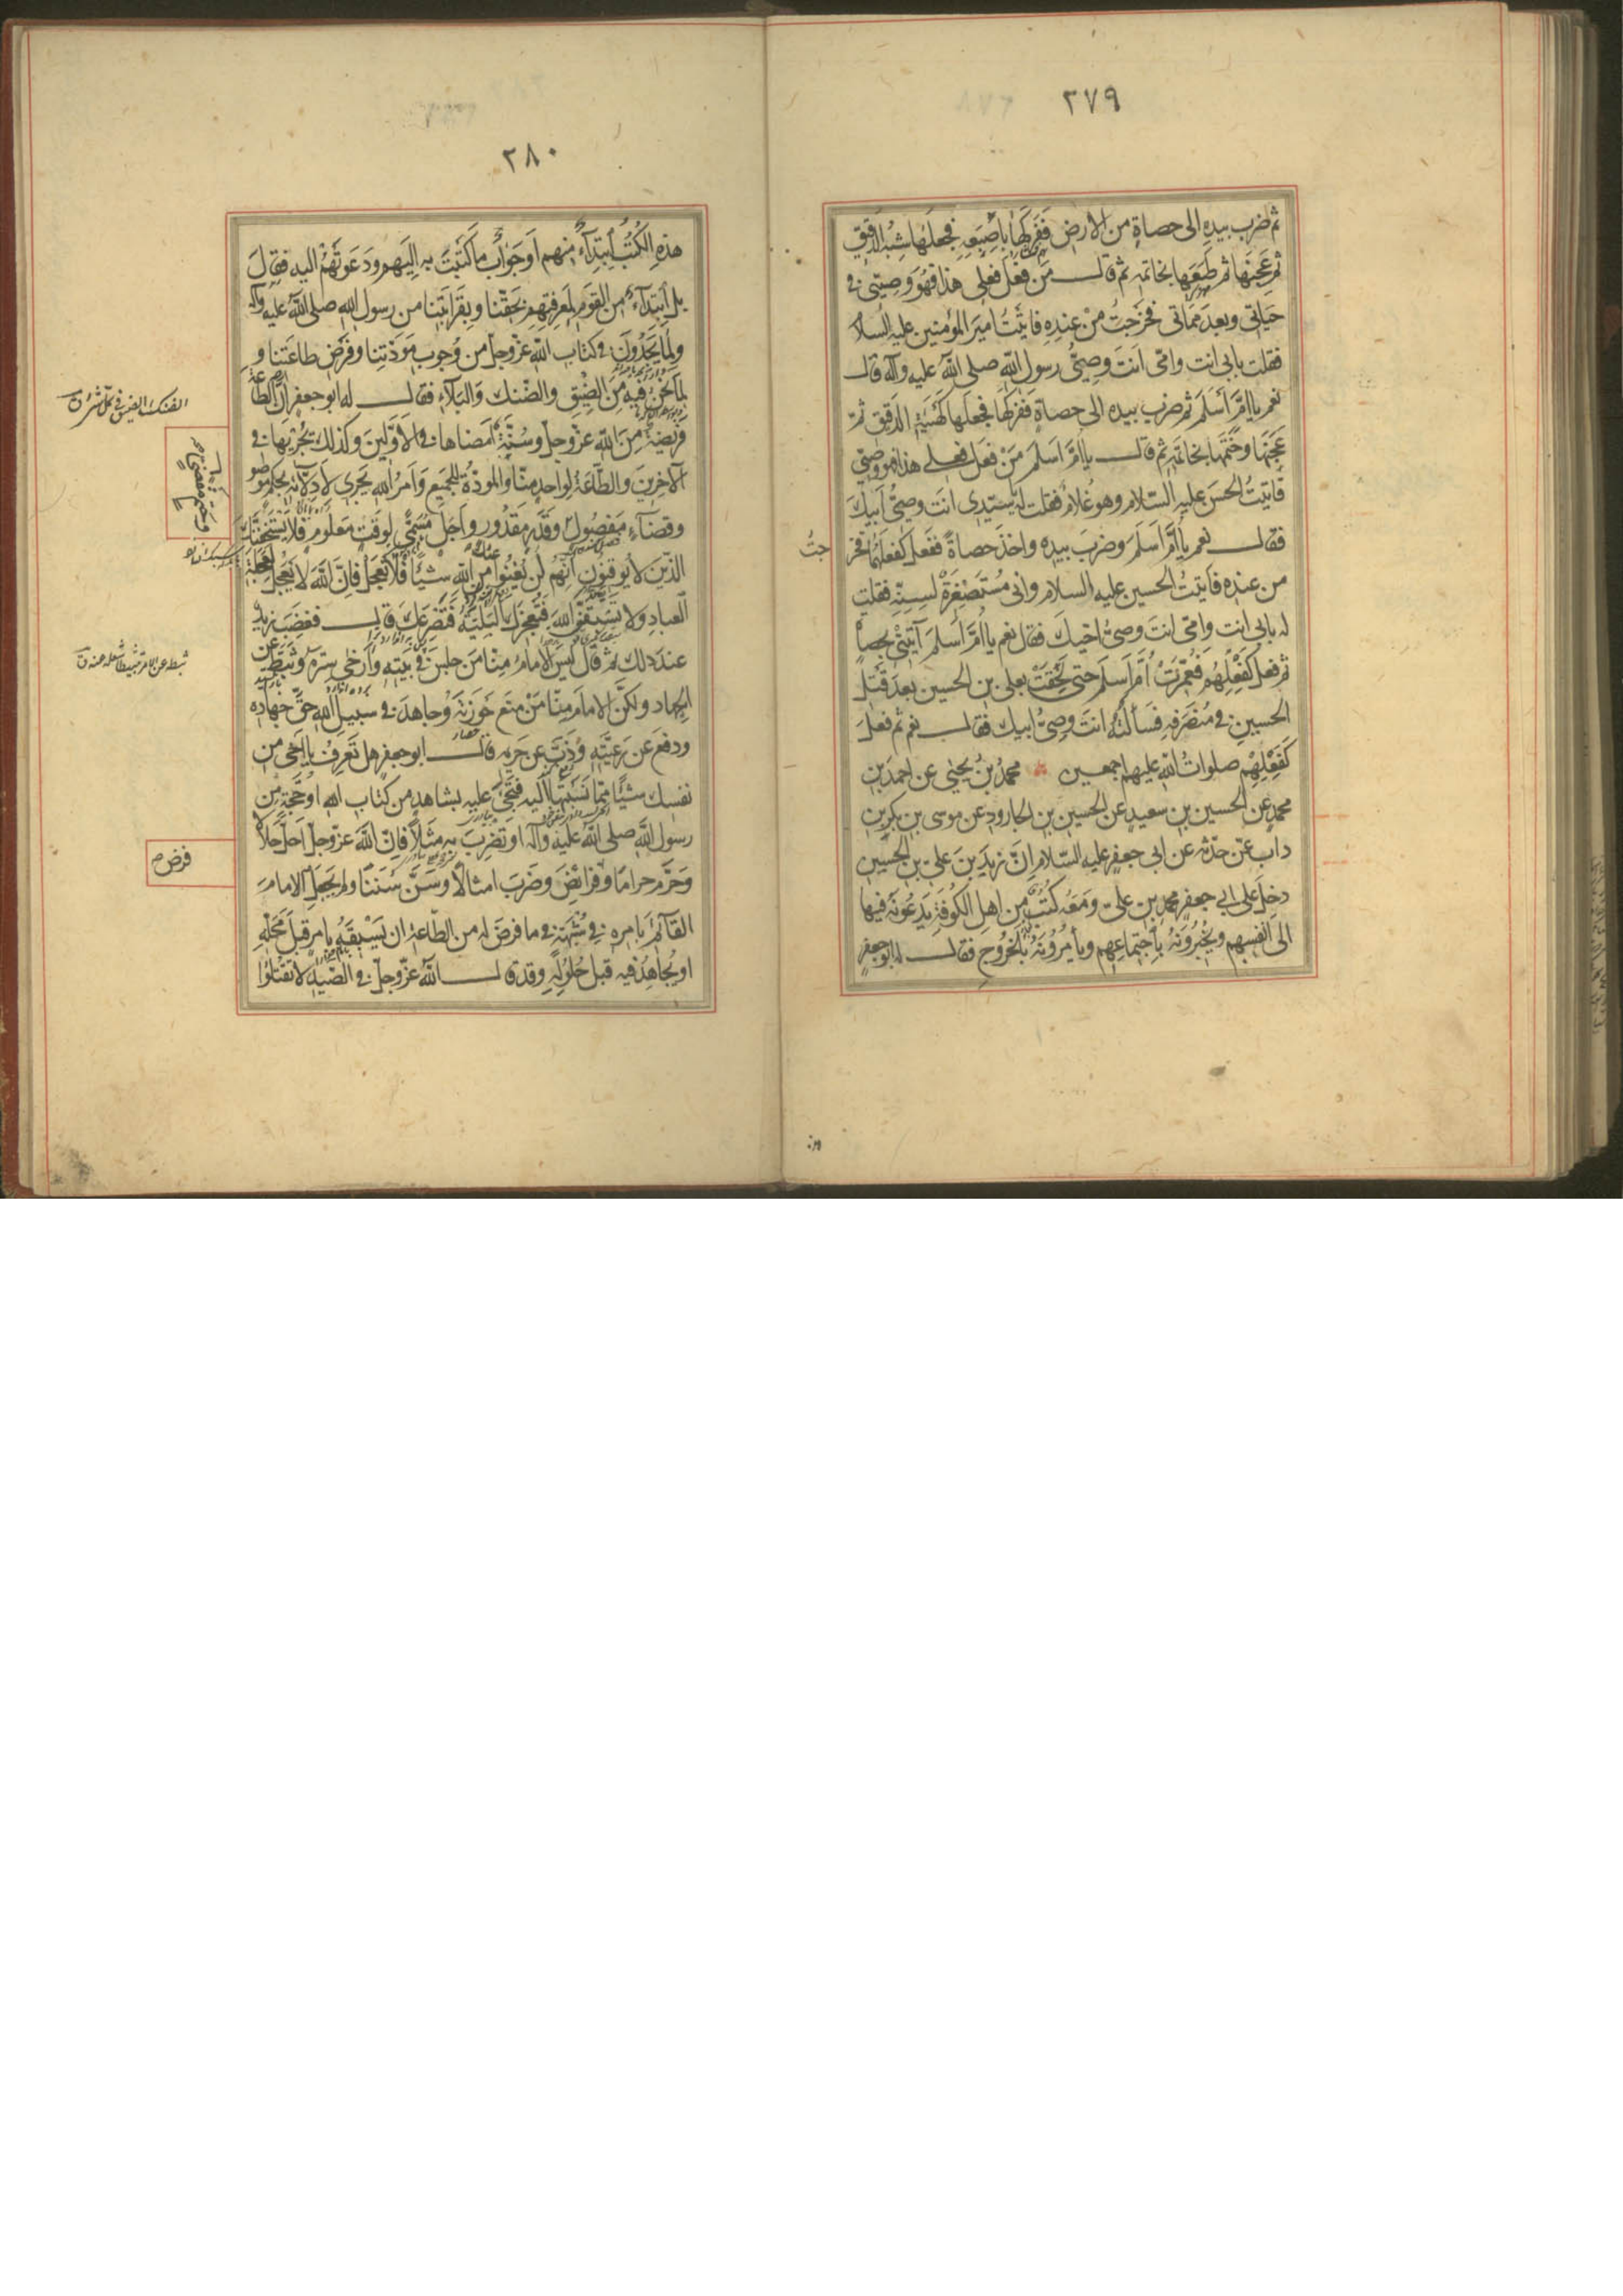 ٢٧٩
ثم ضرب بيده الى حصاة من الارض فَفَرَكَها بِاِصْبَعِهِ فجعلها شِبْهَ الدَّقيق
ثم عَجَنَها ثم طَبَعَها بخاتمه ثم قال مَن فَعَلَ فعلى هذا فهو وصيّى فى
حياتى وبعد مماتى فخرجتُ مِنْ عنده فاتيتُ امير المؤمنين عليه السلام
فقلت بابى انت وامّى انت وصىُّ رسول الله صلى الله عليه وآله قال
نعم يا امَّ اَسْلَم ثم ضرب بيده الى حصاة ففركها فجعلها كهيئة الدقيق ثمّ
عَجَنَها وخَتَمَها بخاتمه ثم قال يا امَّ اسلم مَنْ فَعَل فعلى هذا فهو وصيّى
فاتيتُ الحسن عليه السلام وهو غلامٌ فقلت له يا سيّدى انت وصىُّ ابيك
فقال نعم يا امَّ اَسْلَمَ وضربَ بيده واخذ حصاةً ففعل كفعلهما فخر
جتُ
من عنده فاتيتُ الحسين عليه السلام وانى مُسْتَصْغِرَةٌ لسنّه فقلت
له بابى انت وامّى انت وصىُّ اخيك فقال نعم يا امَّ اسلم آتينى بحصاة
ثم فعل كفعلهم فعُمِّرَتْ اُمُّ اسلم حتى لحقت بعلى بن الحسين بعد قتل
الحسين فى مُنْصَرَفِه فسألتْهُ انت وصىُّ ابيك فقال نعم ثم فعل
كفعلهم صلوات الله عليهم اجمعين محمد بن يحيى عن احمد بن
محمد عن الحسين بن سعيد عن الحسين بن الجارود عن موسى بن بكر بن
داب عمّن حدّثه عن ابى جعفر عليه السلام انّ زيد بن على بن الحسين
دخل على ابى جعفر محمد بن على ومعه كتبٌ من اهل الكوفة يدعونه فيها
الى انفسهم ويُخْبِرُونَهُ باجتماعهم ويأمُرُونَهُ بالخروج فقال له ابو جعفر
٢٨٠
هذه الكُتُبُ ابتداءٌ منهم او جوابُ ما كتبتَ به اليهم ودعوتَهُمْ اليه فقال
بل ابتداءٌ من القوم لمعرفتهم بحقّنا وبقرابتنا من رسول الله صلى الله عليه وآله
ولما يَجِدُونَ فى كتاب الله عزّ وجلّ من وجوب مودّتنا وفرض طاعتنا و
لما نحنُ فيه من الضيق والضنك والبلاء فقال له ابو جعفر انّ الطاعة
فريضة من الله عزّ وجلّ وسنّة امضاها فى الاوّلين وكذلك يجريها فى
الآخرين والطاعة لواحد منّا والمودّة للجميع وامر الله يجرى لاوليائه بحكم موصو
وقضاء مفصول وقدر مقدور واجل مسمّى لوقت معلوم فلا يستخفنّك
الذين لا يوقنون انّهم لن يغنوا عنك من الله شيئا فلا تعجل فانّ الله لا يعجل لعجلة
العباد ولا تسبقنّ الله فتعجزك البليّة فتصرعك قال فغضب زيد
عند ذلك ثم قال ليس الامام منّا من جلس فى بيته وارخى ستره وثبّط عن
الجهاد ولكنّ الامام منّا مَنْ منع حَوْزَتَهُ وجاهد فى سبيل الله حقّ جهاده
ودفع عن رعيّته وذبّ عن حريمه قال ابو جعفر هل تعرف يا اخى من
نفسك شيئا ممّا نسبتها اليه فتجئ عليه بشاهد من كتاب الله او حجّة من
رسول الله صلى الله عليه وآله او تضرب به مثلا فانّ الله عزّ وجلّ احلّ حلالا
وحرّم حراما وفرض فرائض وضرب امثالا وسنّ سننا ولم يجعل الامام
القائم بامره فى شبهة فى ما فرض له من الطاعة ان يسبقه بامر قبل محلّه
او يجاهد فيه قبل حلوله وقد قال الله عزّ وجلّ فى الصيد لا تقتلوا
فرض